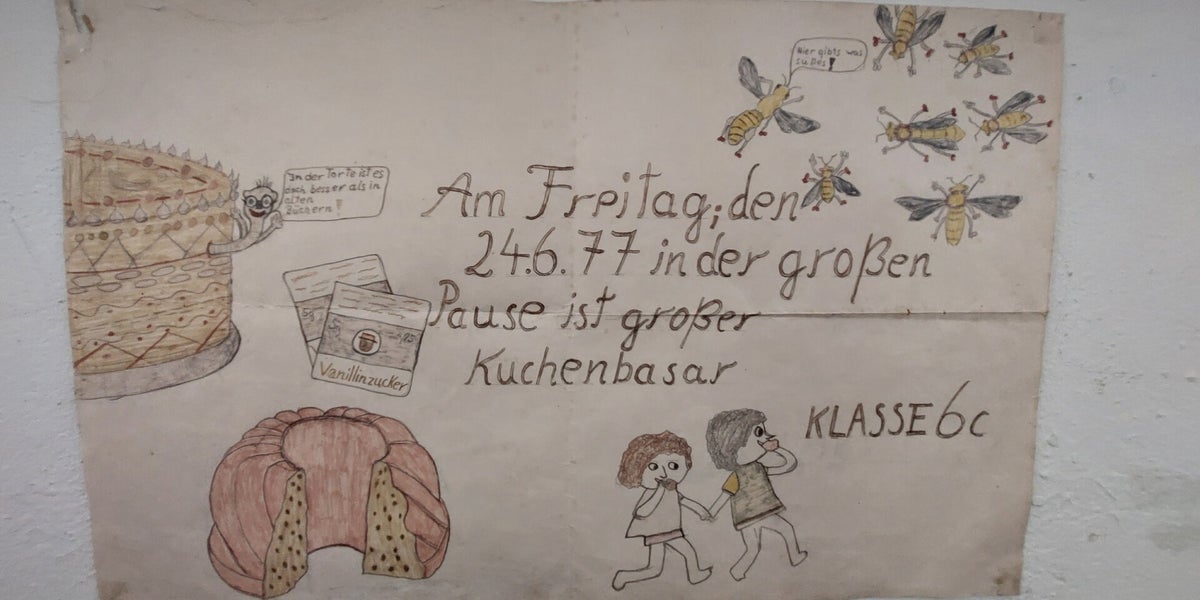 Hier gibts was
süßes!
In der Torte ist es
doch besser als in
alten
Büchern!
Am Freitag, den
24.6.77 in der großen
Pause ist großer
Kuchenbasar
Vanillinzucker
KLASSE 6c